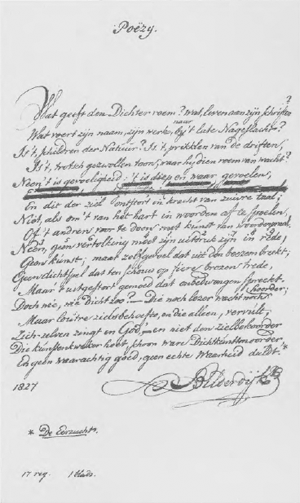 Poëzy.
Wat geeft den Dichter roem? wat, leven aan zijn schriften?
Wat voert zijn naam, zijn werk, naar bij 't late Nageslacht?
Is 't, schildren der Natuur? Is 't, prikklen van de driften,
Is 't, trotsch gezwollen toon, waar hij dien roem van wacht?
Neen 't is gevoeligheid: 't is diep en waar gevoelen,
En dit der ziel ontstort in kracht van zuivre taal,
Niet, als om 't van het hart in woorden af te
Of 't andren voor te doen met kunst van
Neen, geen vertolking meer zijn in rede,
Geen kunst, maar zelfgevoel dat uit den boezem breekt,
Geen dichtpraal dat ten schouw op fiere brozen trede,
Maar uitgestort gemoed dat onbedwongen spreekt.
Doch née, wie dicht zoo? Die noch lezer wacht noch hoorder;
Maar loutre zielsbehoefte, en die alleen, vervult,
Zich-zelven zingt en God, en niet den
Die kunstenkweker hebt, schoon ware Dichtkunst
En geen waarachtig goed, geen echte Waarheid duldt.*
1827
Bilderdijk
* De Eerzucht.
17 reg. 1 blads.